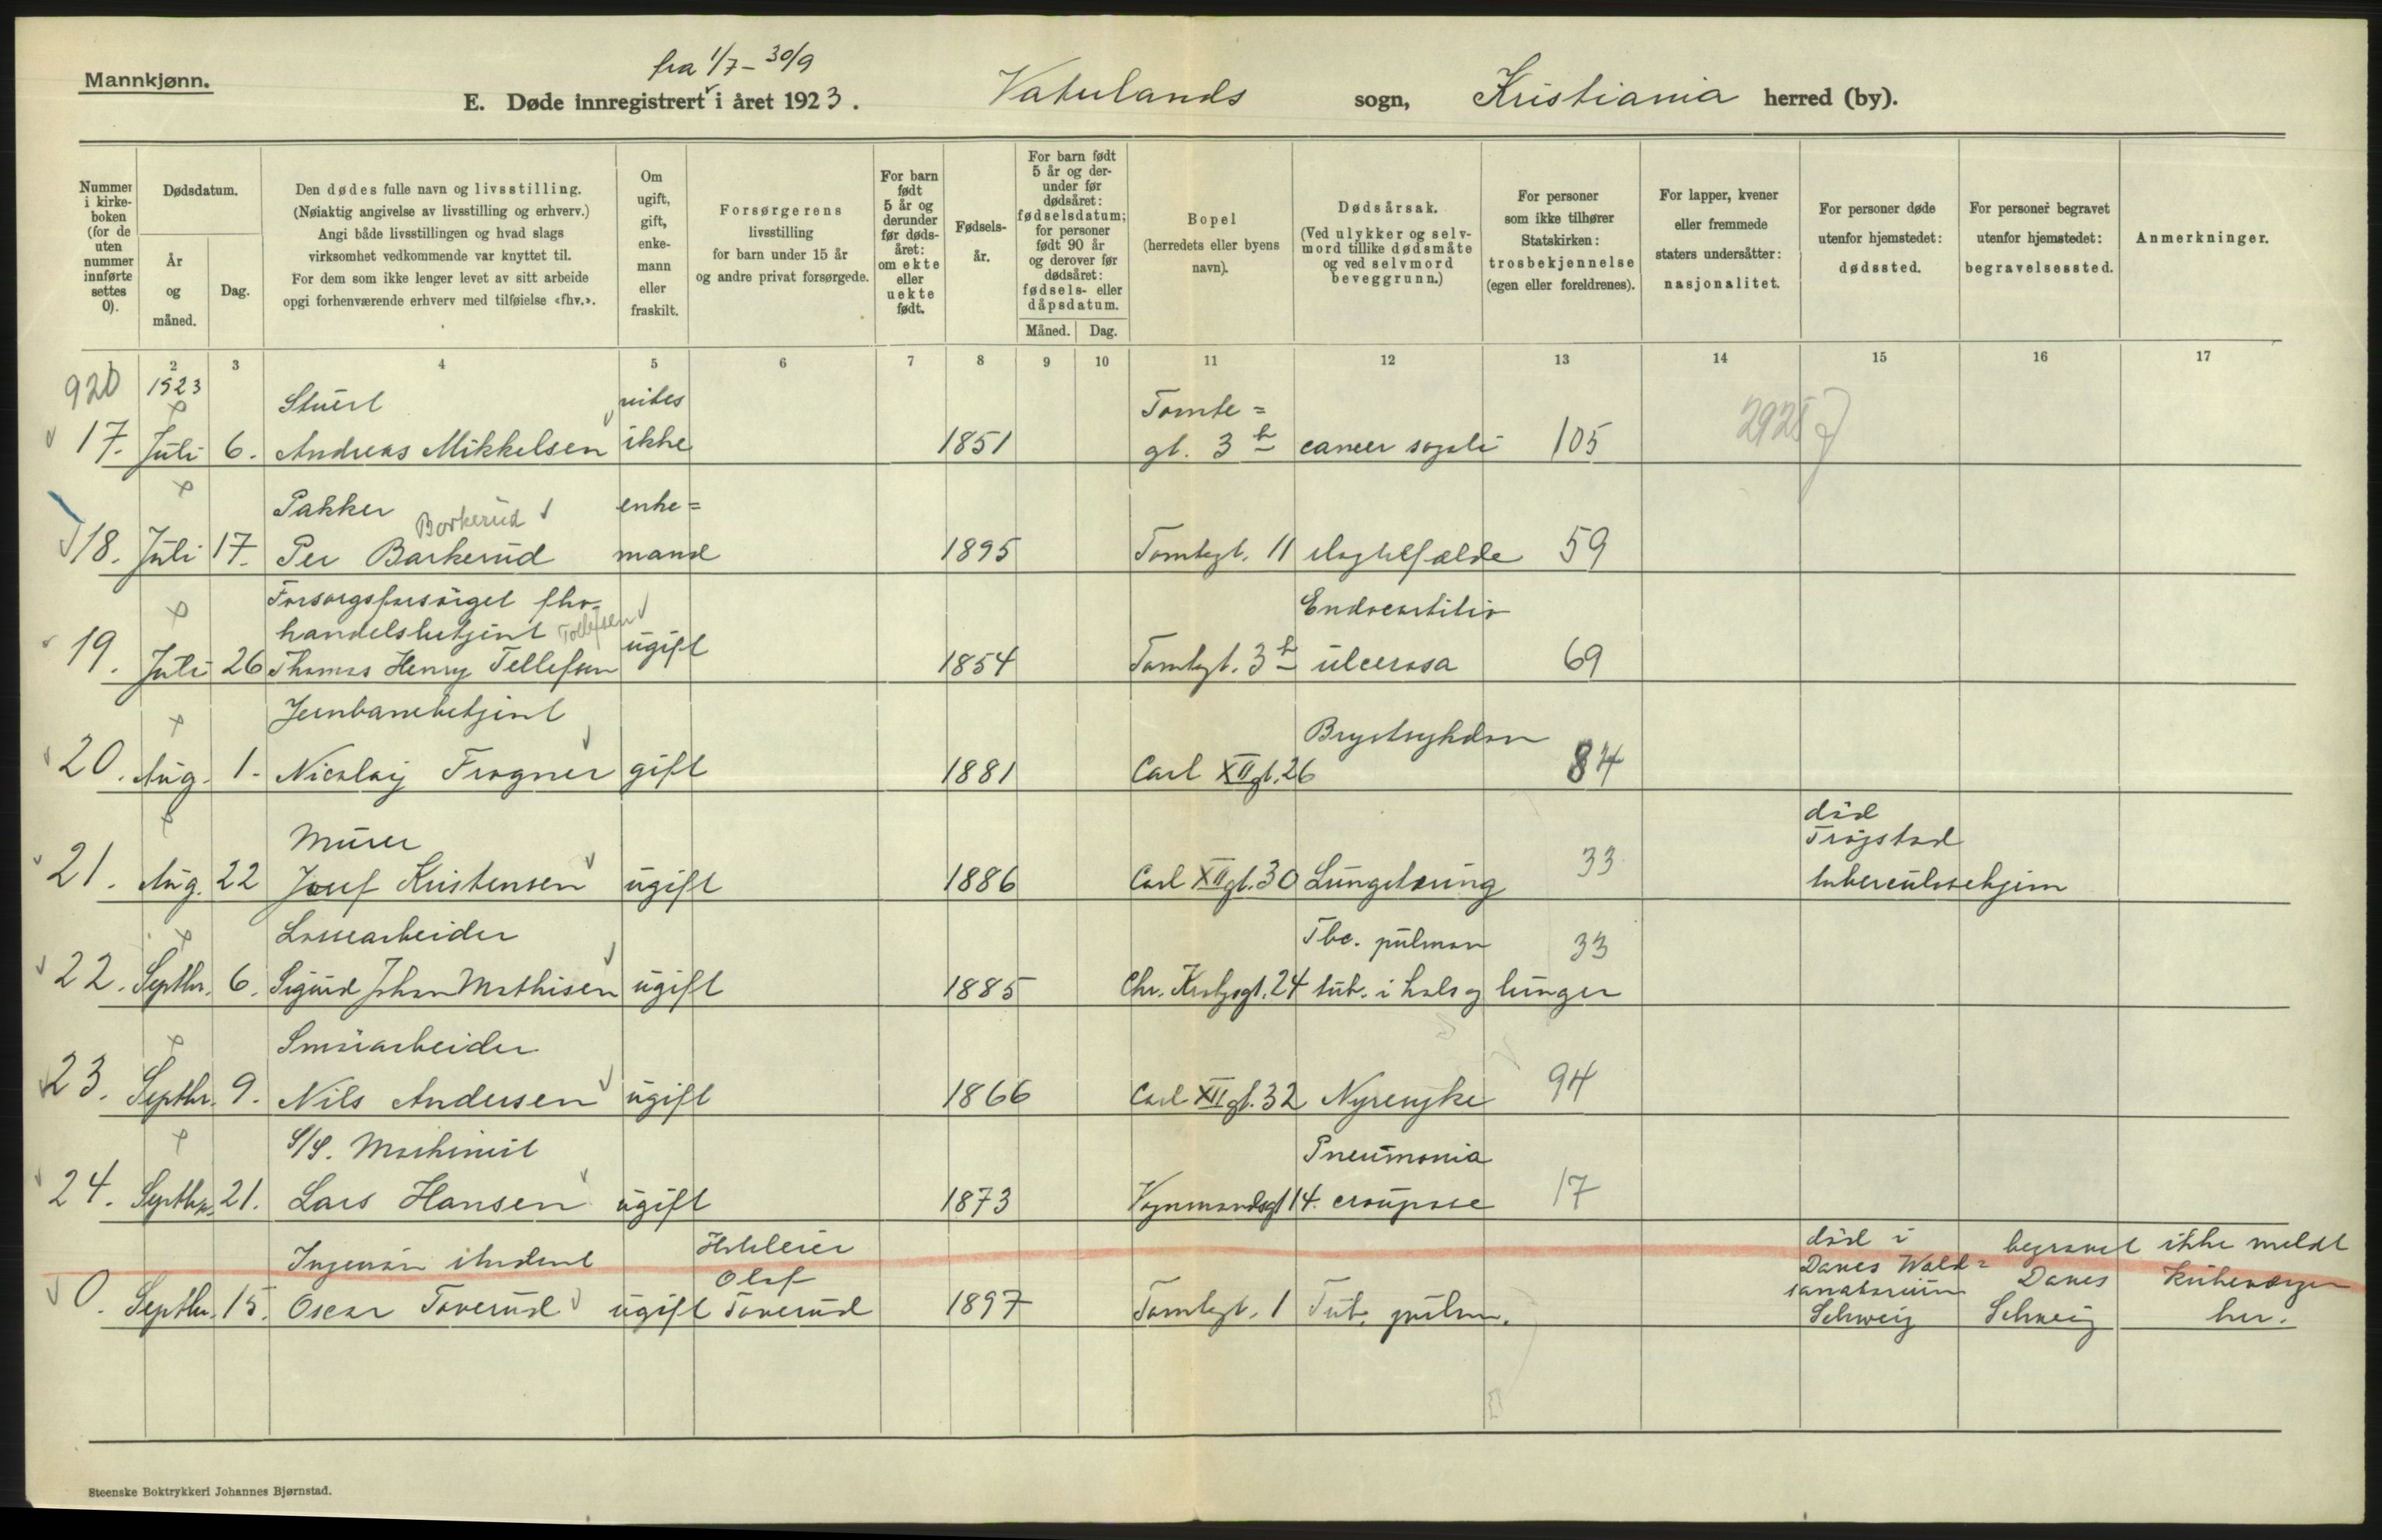 Mannkjønn.
fra 1/7 - 30/9
E. Døde innregistrert i året 1923. Vaterlands sogn, Kristiania herred (by).
Nummer i kirke-boken (for de uten nummer innførte settes 0).
Dødsdatum.
År og måned.
Dag.
Den dødes fulle navn og livsstilling.
(Nøiaktig angivelse av livsstilling og erhverv.)
Angi både livsstillingen og hvad slags
virksomhet vedkommende var knyttet til.
For dem som ikke lenger levet av sitt arbeide
opgi forhenværende erhverv med tilføielse «fhv.».
Om ugift, gift, enke-mann eller fraskilt.
Forsørgerens
livsstilling
for barn under 15 år
og andre privat forsørgede.
For barn født 5 år og derunder før døds-året: om ekte eller uekte født.
Fødsels-år.
For barn født 5 år og der-under før dødsåret: fødselsdatum; for personer født 90 år og derover før dødsåret: fødsels- eller dåpsdatum.
Måned. Dag.
Bopel
(herredets eller byens
navn).
Dødsårsak.
(Ved ulykker og selv-
mord tillike dødsmåte
og ved selvmord
beveggrunn.)
For personer
som ikke tilhører
Statskirken:
trosbekjennelse
(egen eller foreldrenes).
For lapper, kvener
eller fremmede
staters undersåtter:
nasjonalitet.
For personer døde
utenfor hjemstedet:
dødssted.
For personer begravet
utenfor hjemstedet:
begravelsessted.
Anmerkninger.
2 3 4 5 6 7 8 9 10 11 12 13 14 15 16 17
920 1923
Stuert vites Tomte=
17. Juli 6. Andreas Mikkelsen ikke 1851 gt. 3 b cancer 105
Pakker Borkerud enke=
18. Juli 17. Per Barkerud mand 1895 Tomtegt. 11 59
Forsorgsforsörget fhv.
handelsbetjent Tollefsen Endocartitis
19. Juli 26 Thomas Henry Tellefsen ugift 1854 Tomtegt. 3 b ulcerosa 69
Jernbanebetjent Brystsykdom
20. Aug. 1. Nicolaij Frogner gift 1881 Carl XII gt. 26 84
Murer död
Trögstad
21. Aug. 22 Josef Kristensen ugift 1886 Carl XII gt. 30 Lungetæring 33 tuberculosehjem
Lossearbeider Tbc. pulmon 33
22. Septbr. 6. Sigurd Johan Mathisen ugift 1885 Chr. Krohgsgt. 24 tub. i hals og lunger
Smörarbeider
23. Septbr. 9. Nils Andersen ugift 1866 Carl XII gt. 32 Nyresyke 94
S/S. Maskinist Pneumonia
24. Septbr. 21. Lars Hansen ugift 1873 Vognmandsgt 14. croupose 17
Ingeniör student Hotelleier död i begravet ikke meldt
Olaf Davos Wald=
sanatorium Davos kirkeverger
0. Septbr. 15. Oscar Toverud ugift Toverud 1897 Tomtegt. 1 Tub. pulm. Schweiz Schweiz her.
Steenske Boktrykkeri Johannes Bjørnstad.